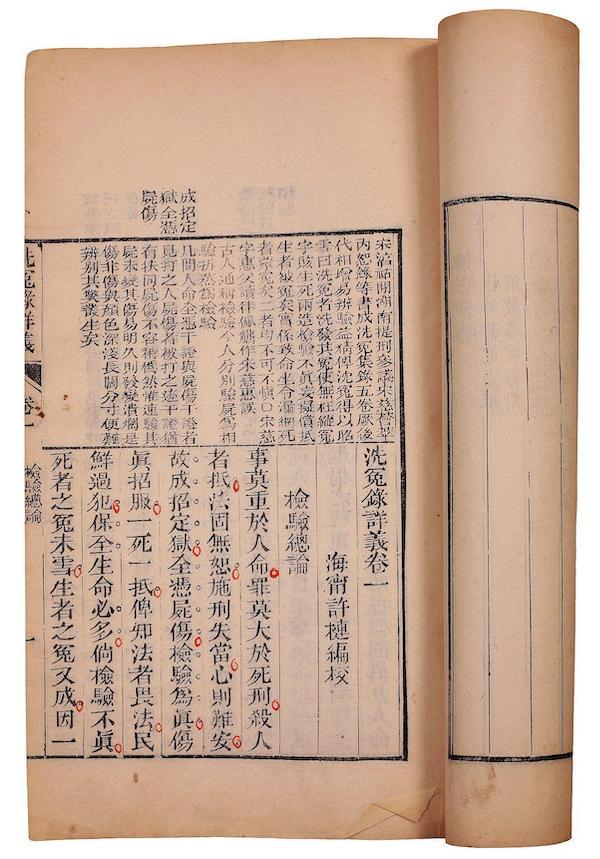 成招定
獄全憑
屍傷
宋淳祐閒湖南提刑參議宋慈薈萃
內恕錄等書成洗冤集錄五卷厥後
代相增易辨驗益精俾沈冤得以昭
雪曰洗冤者洗發其冤使無枉縱冤
字賅生死兩造檢驗不眞妄擬償抵
生者被冤矣當係致命坐令漏網死
者銜冤矣二者均不可不慎○宋慈
字惠父讀律佩觿作朱慈惠誤
古人通稱檢驗今人分別驗屍為相
驗拆蒸為檢驗
凡問人命全憑干證與屍傷干證者
見打之人屍傷者被打之迹干證猶
有扶同屍傷不容稍僞然惟速驗其
屍未變其傷易明久則發變潰爛是
傷非傷與顏色深淺長闊分寸便難
辨別其獘叢生矣
洗冤錄詳義卷一
海甯許槤編校
檢驗總論
事莫重於人命罪莫大於死刑殺人
者抵法固無恕施刑失當心則難安
故成招定獄全憑屍傷檢驗為眞傷
眞招服一死一抵俾知法者畏法民
鮮過犯保全生命必多倘檢驗不眞
死者之冤未雪生者之冤又成因一
洗冤錄詳義
卷一
檢驗總論
一